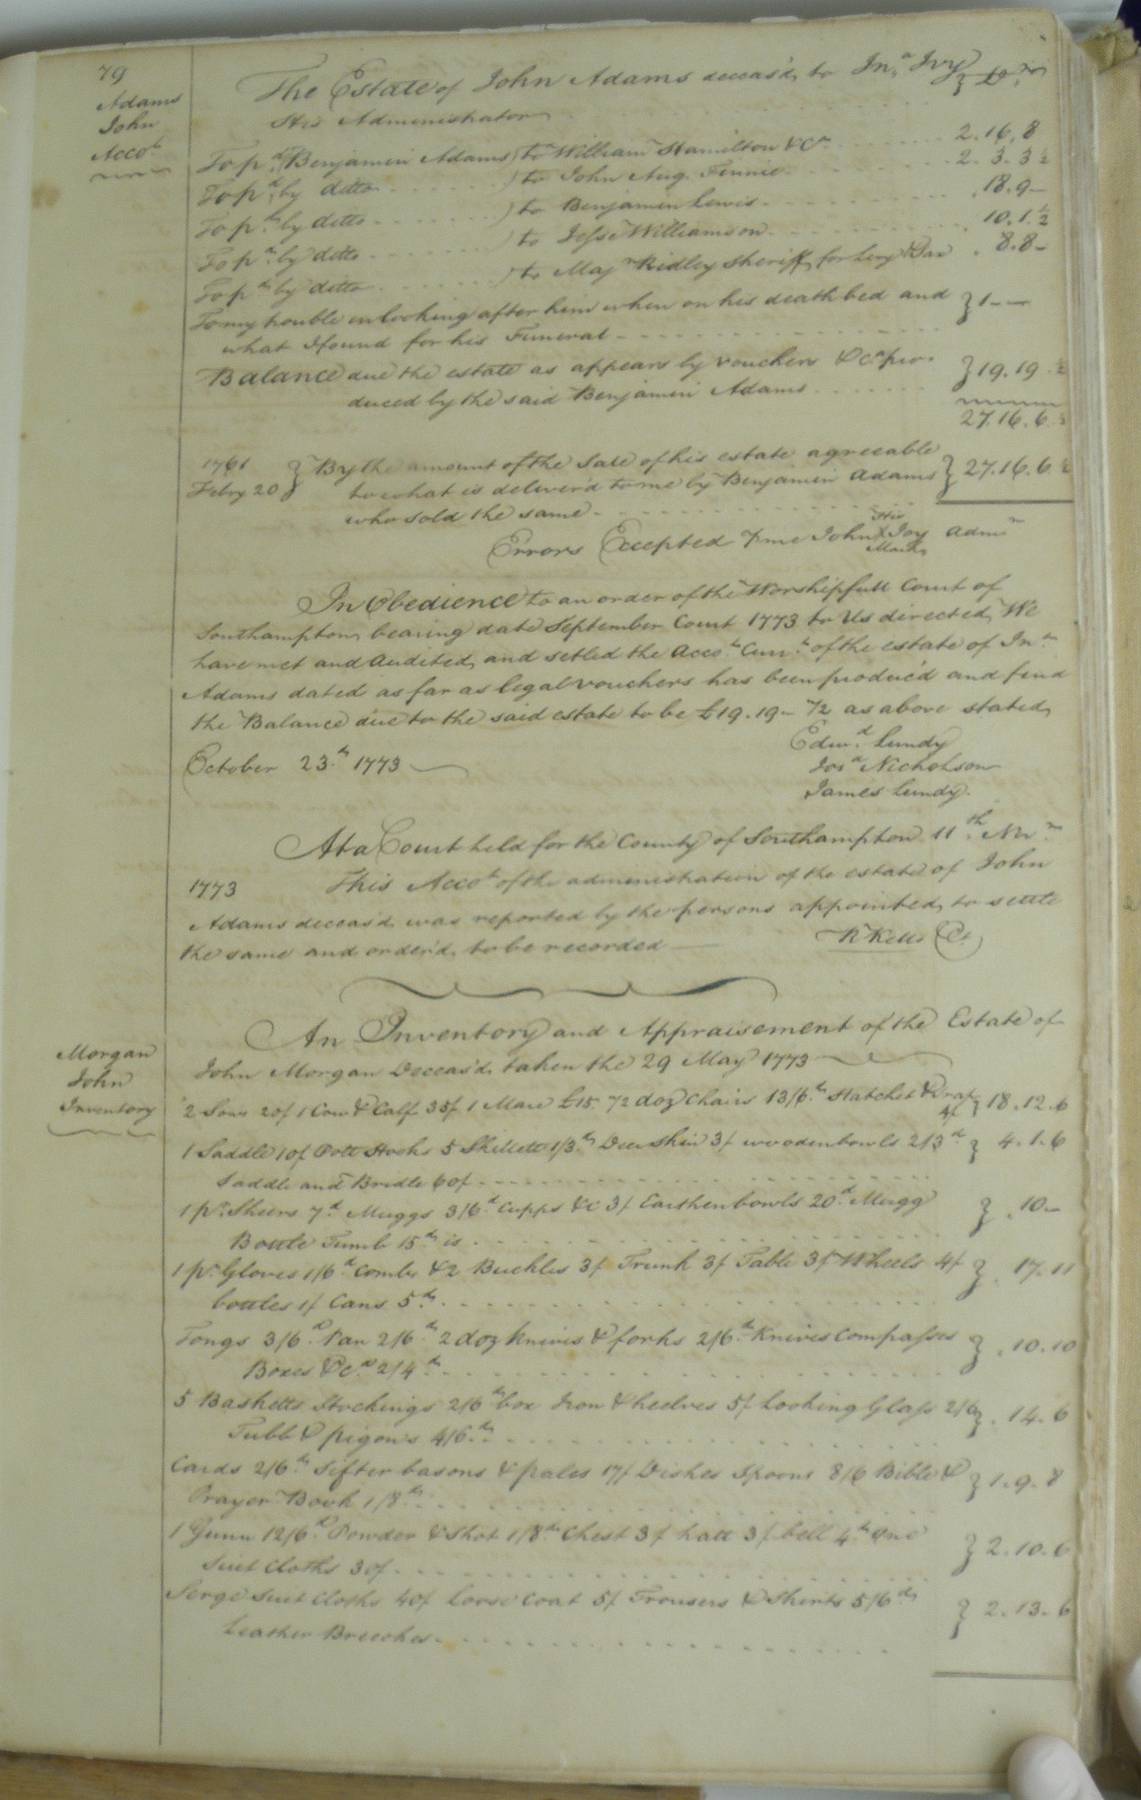 79
Adams
John
Accot
The Estate of John Adams deceas'd, to Jno. Ivy } Dr.
His Administrator
To pd. Benjamin Adams) to William Hamilton &Co. 2.16.8
To pd. by ditto ) to John Aug. Finnie 2.3.3½
To pd. by ditto ) to Benjamin Lewis .18.9-
To pd. by ditto ) to Jesse Williamson 10.1.½
To pd. by ditto ) to Majr Ridley Sheriff, for Levy &Tax . 8.8-
To my trouble in looking after him when on his death bed and } 1--
what I found for his Funeral
Balance due the estate as appears by vouchers &Ca. pro- } 19.19.½
duced by the said Benjamin Adams
27.16.6.½
1761
Febry 20 } By the amount of the Sale of his estate agreeable
to what is deliver'd to me by Benjamin Adams } 27.16.6½
who sold the same
Errors Excepted Pr me John his X Mark Ivy Admr
In Obedience to an order of the Worshipfull Court of
Southampton, bearing date September Court 1773 to Us directed, We
have met and Audited, and setled the Accot. Currt. of the estate of Jno.
Adams dated as far as legal vouchers has been produc'd and find
the Balance due to the said estate to be £19.19-½ as above stated,
Edwd. Lundy
October 23d. 1773
Josa. Nicholson
James Lundy.
At a Court held for the County of Southampton 11th. Novr.
1773 This Accot. of the administration of the estate of John
Adams deceas'd was reported by the persons appointed, to settle
the same and order'd, to be recorded
R Kello Ct.
Morgan
John
Inventory
An Inventory and Appraisement of the Estate of
John Morgan Deceas'd, taken the 29 May 1773
2 Sows 20/ 1 Cow & Calf 35/ 1 Mare £15. ½ doz Chairs 13/6d. Hatchet & 4/ } 18.12.6
1 Saddle 10/ Pott Hooks 5 Skillett 1/3d. Deer Skin 3/ wooden bowls 2/3d. } 4.1.6
Saddle and Bridle 60/
1 pr. Sheers 7d. Muggs 3/6d. Cupps &C 3/ Earthen bowls 20d. Mugg } .10-
Bottle Tumb 15d. is
1 pr. Gloves 1/6d. Combs & 2 Buckles 3/ Trunk 3/ Table 3/ Wheels 4/ } .17.11
bottles 1/ Cans 5d.
Tongs 3/6d. Pan 2/6d. 2 doz knives & forks 2/6d. Knives Compasses } .10.10
Boxes &Ca. 2/4d.
5 Basketts Stockings 2/6d. box Iron & heelers 5/ Looking Glass 2/6 } .14.6
Tubb & pigons 4/6d.
Cards 2/6d. Sifter basons & pales 17/ Dishes Spoons 8/6 Bible & } 1.9.8
Prayer Book 1/8d.
1 Gunn 12/6d. Powder & Shot 1/8d. Chest 3/ hatt 3/ bell 4d. One } 2.10.6
Suit Cloths 30/
Serge Suit Cloths 40/ Loose Coat 5/ Trousers & Shirts 5/6d. } 2.13.6
Leather Breeches